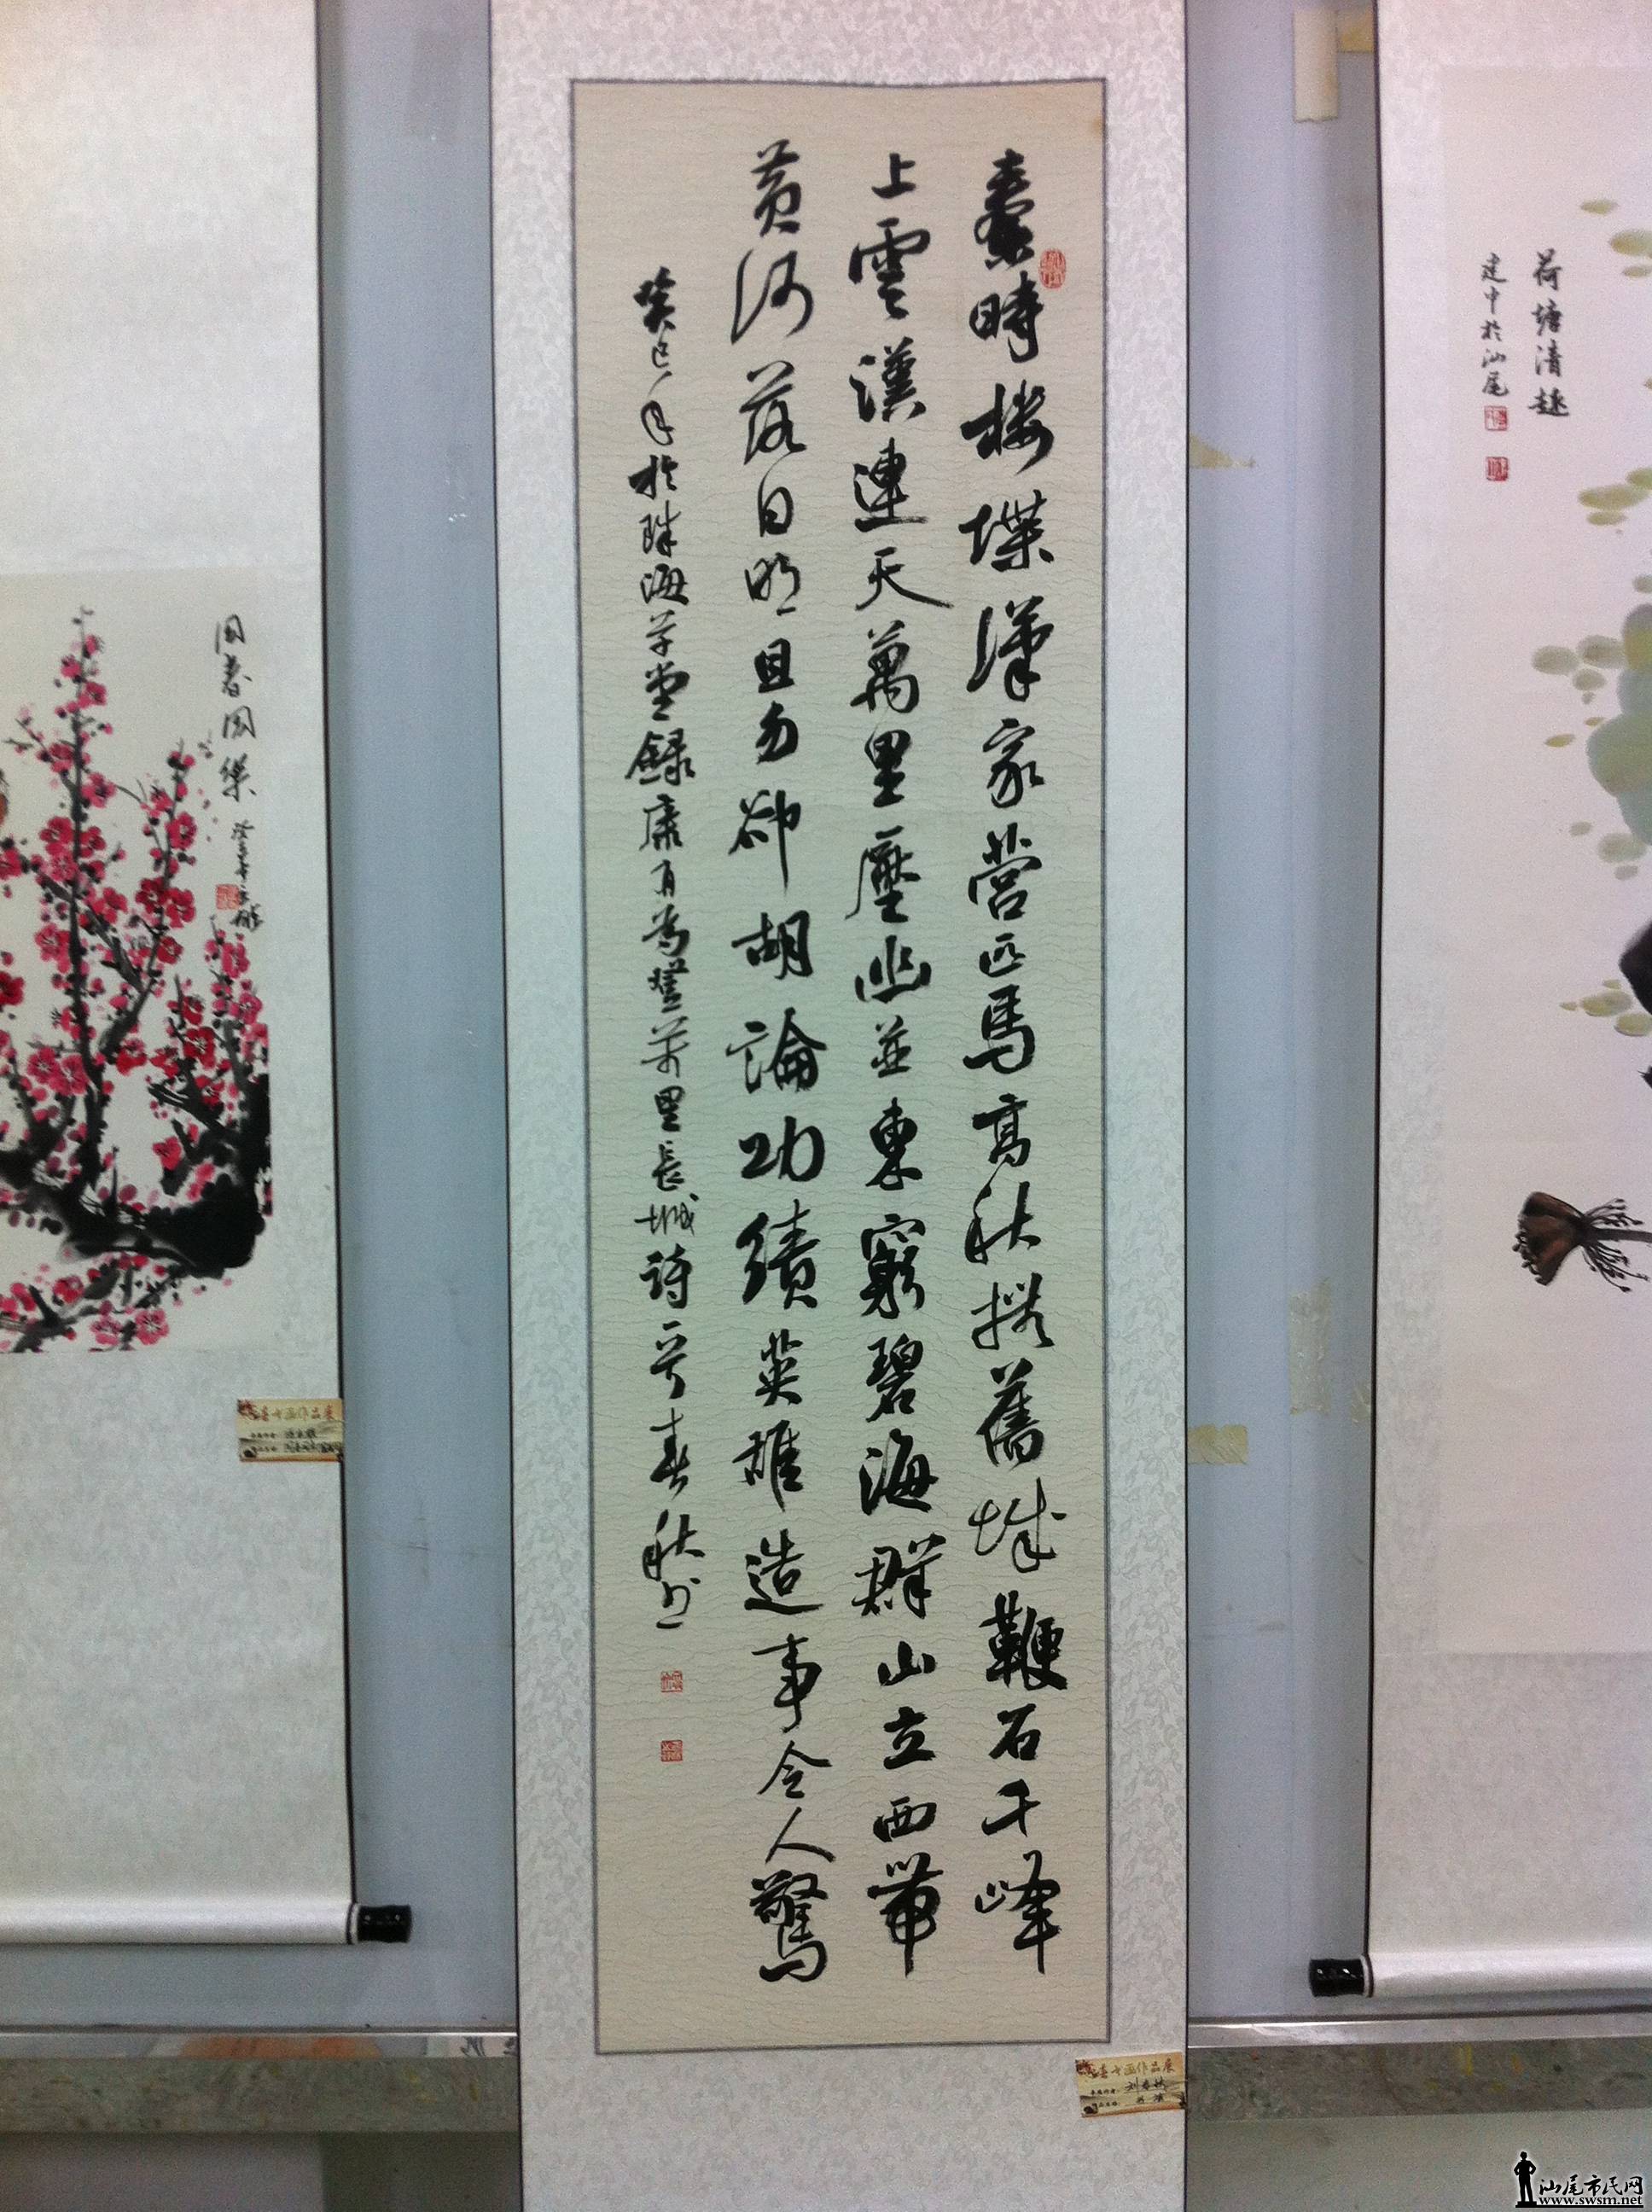 秦時楼堞漢家營匹馬高秋撫舊城鞭石千峰
上雲漢連天萬里壓幽並東窮碧海群山立西帶
黄河落日明且勿卻胡論功績英雄造事令人驚
癸巳年於珠海草堂錄康有為登萬里長城詩一首春秋书
荷塘清趣
建中於汕尾
国春国樂
汕尾市民网
www.swsm.net